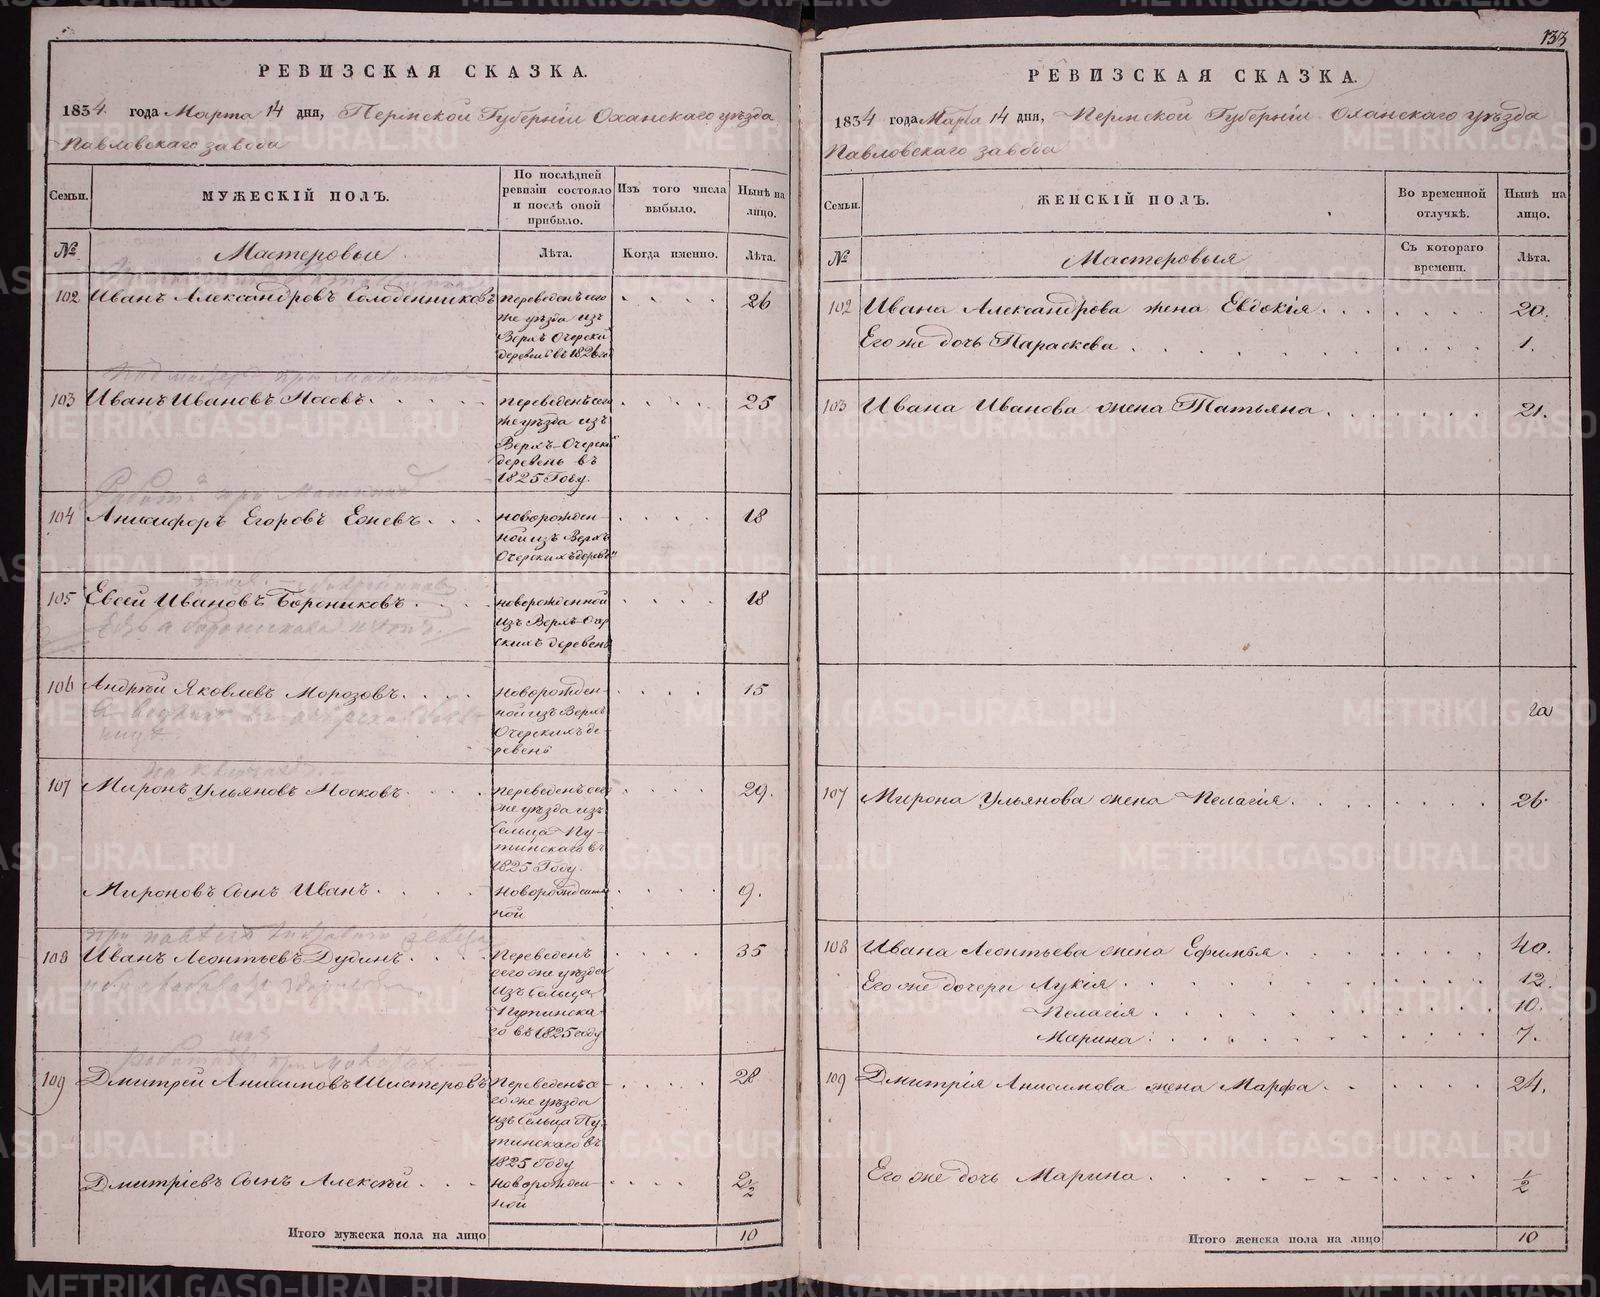 РЕВИЗСКАЯ СКАЗКА.
1834 года Марта 14 дня, Пермской Губерніи Оханскаго уѣзда
Павловскаго завода
Семьи.
МУЖЕСКІЙ ПОЛЪ.
По послѣдней ревизіи состояло и послѣ оной прибыло.
Изъ того числа выбыло.
Нынѣ на лицо.
№
Мастеровыи
Лѣта.
Когда именно.
Лѣта.
102 Иванъ Александровъ Солоденниковъ
переведенъ сего
же уѣзда изъ
Верхъ Очерски
деревнь въ 1826 го
26
103 Иванъ Ивановъ Носовъ
переведенъ сего
же уѣзда изъ
Верхъ-Очерски
деревень въ
1825 Году.
25
104 Анисифоръ Егоровъ Ежевъ
новорожден-
ной изъ Верхъ
Очерскихъ дерев
18
105 Евсей Ивановъ Борониковъ
новорожденной
изъ Верхъ-Очер
скихъ деревень
18
106 Андрѣй Яковлевъ Морозовъ
новорожден-
ной изъ Верхъ
Очерскихъ де-
ревень
15
107 Миронъ Ульяновъ Носковъ
переведенъ сего
же уѣзда изъ
Сельца Пу-
тинскаго въ
1825 Году.
29.
Мироновъ Сынъ Иванъ
Новорожден
ной
9.
108 Иванъ Леонтьевъ Дудинъ
Переведенъ
сего же уѣзда
изъ Сельца
Путинска
го въ 1825 году
35
109 Дмитрей Анисимовъ Шистеровъ
Переведенъ с
его же уѣзда
изъ Сельца Пу-
тинскаго въ
1825 Году
28
Дмитріевъ Сынъ Алексѣй
Новорожден-
ной
2 1/2
Итого мужеска пола на лицо 10
133
РЕВИЗСКАЯ СКАЗКА.
1834 года Марта 14 дня, Пермской Губерніи Оханскаго уѣзда
Павловскаго завода
Семьи.
ЖЕНСКІЙ ПОЛЪ.
Во временной отлучкѣ.
Нынѣ на лицо.
№
Мастеровыя
Съ котораго времени.
Лѣта.
102 Ивана Александрова жена Евдокія 20.
Его же дочь Параскева 1.
103 Ивана Иванова жена Татьяна 21.
107 Мирона Ульянова жена Пелагія 26.
108 Ивана Леонтьева жена Ефимья 40.
Его же дочери Лукія 12.
Пелагія 10.
Марина 7.
109 Дмитрія Анисимова жена Марфа 24.
Его же дочь Марина 1/2
Итого женска пола на лицо 10
METRIKI.GASO-URAL.RU